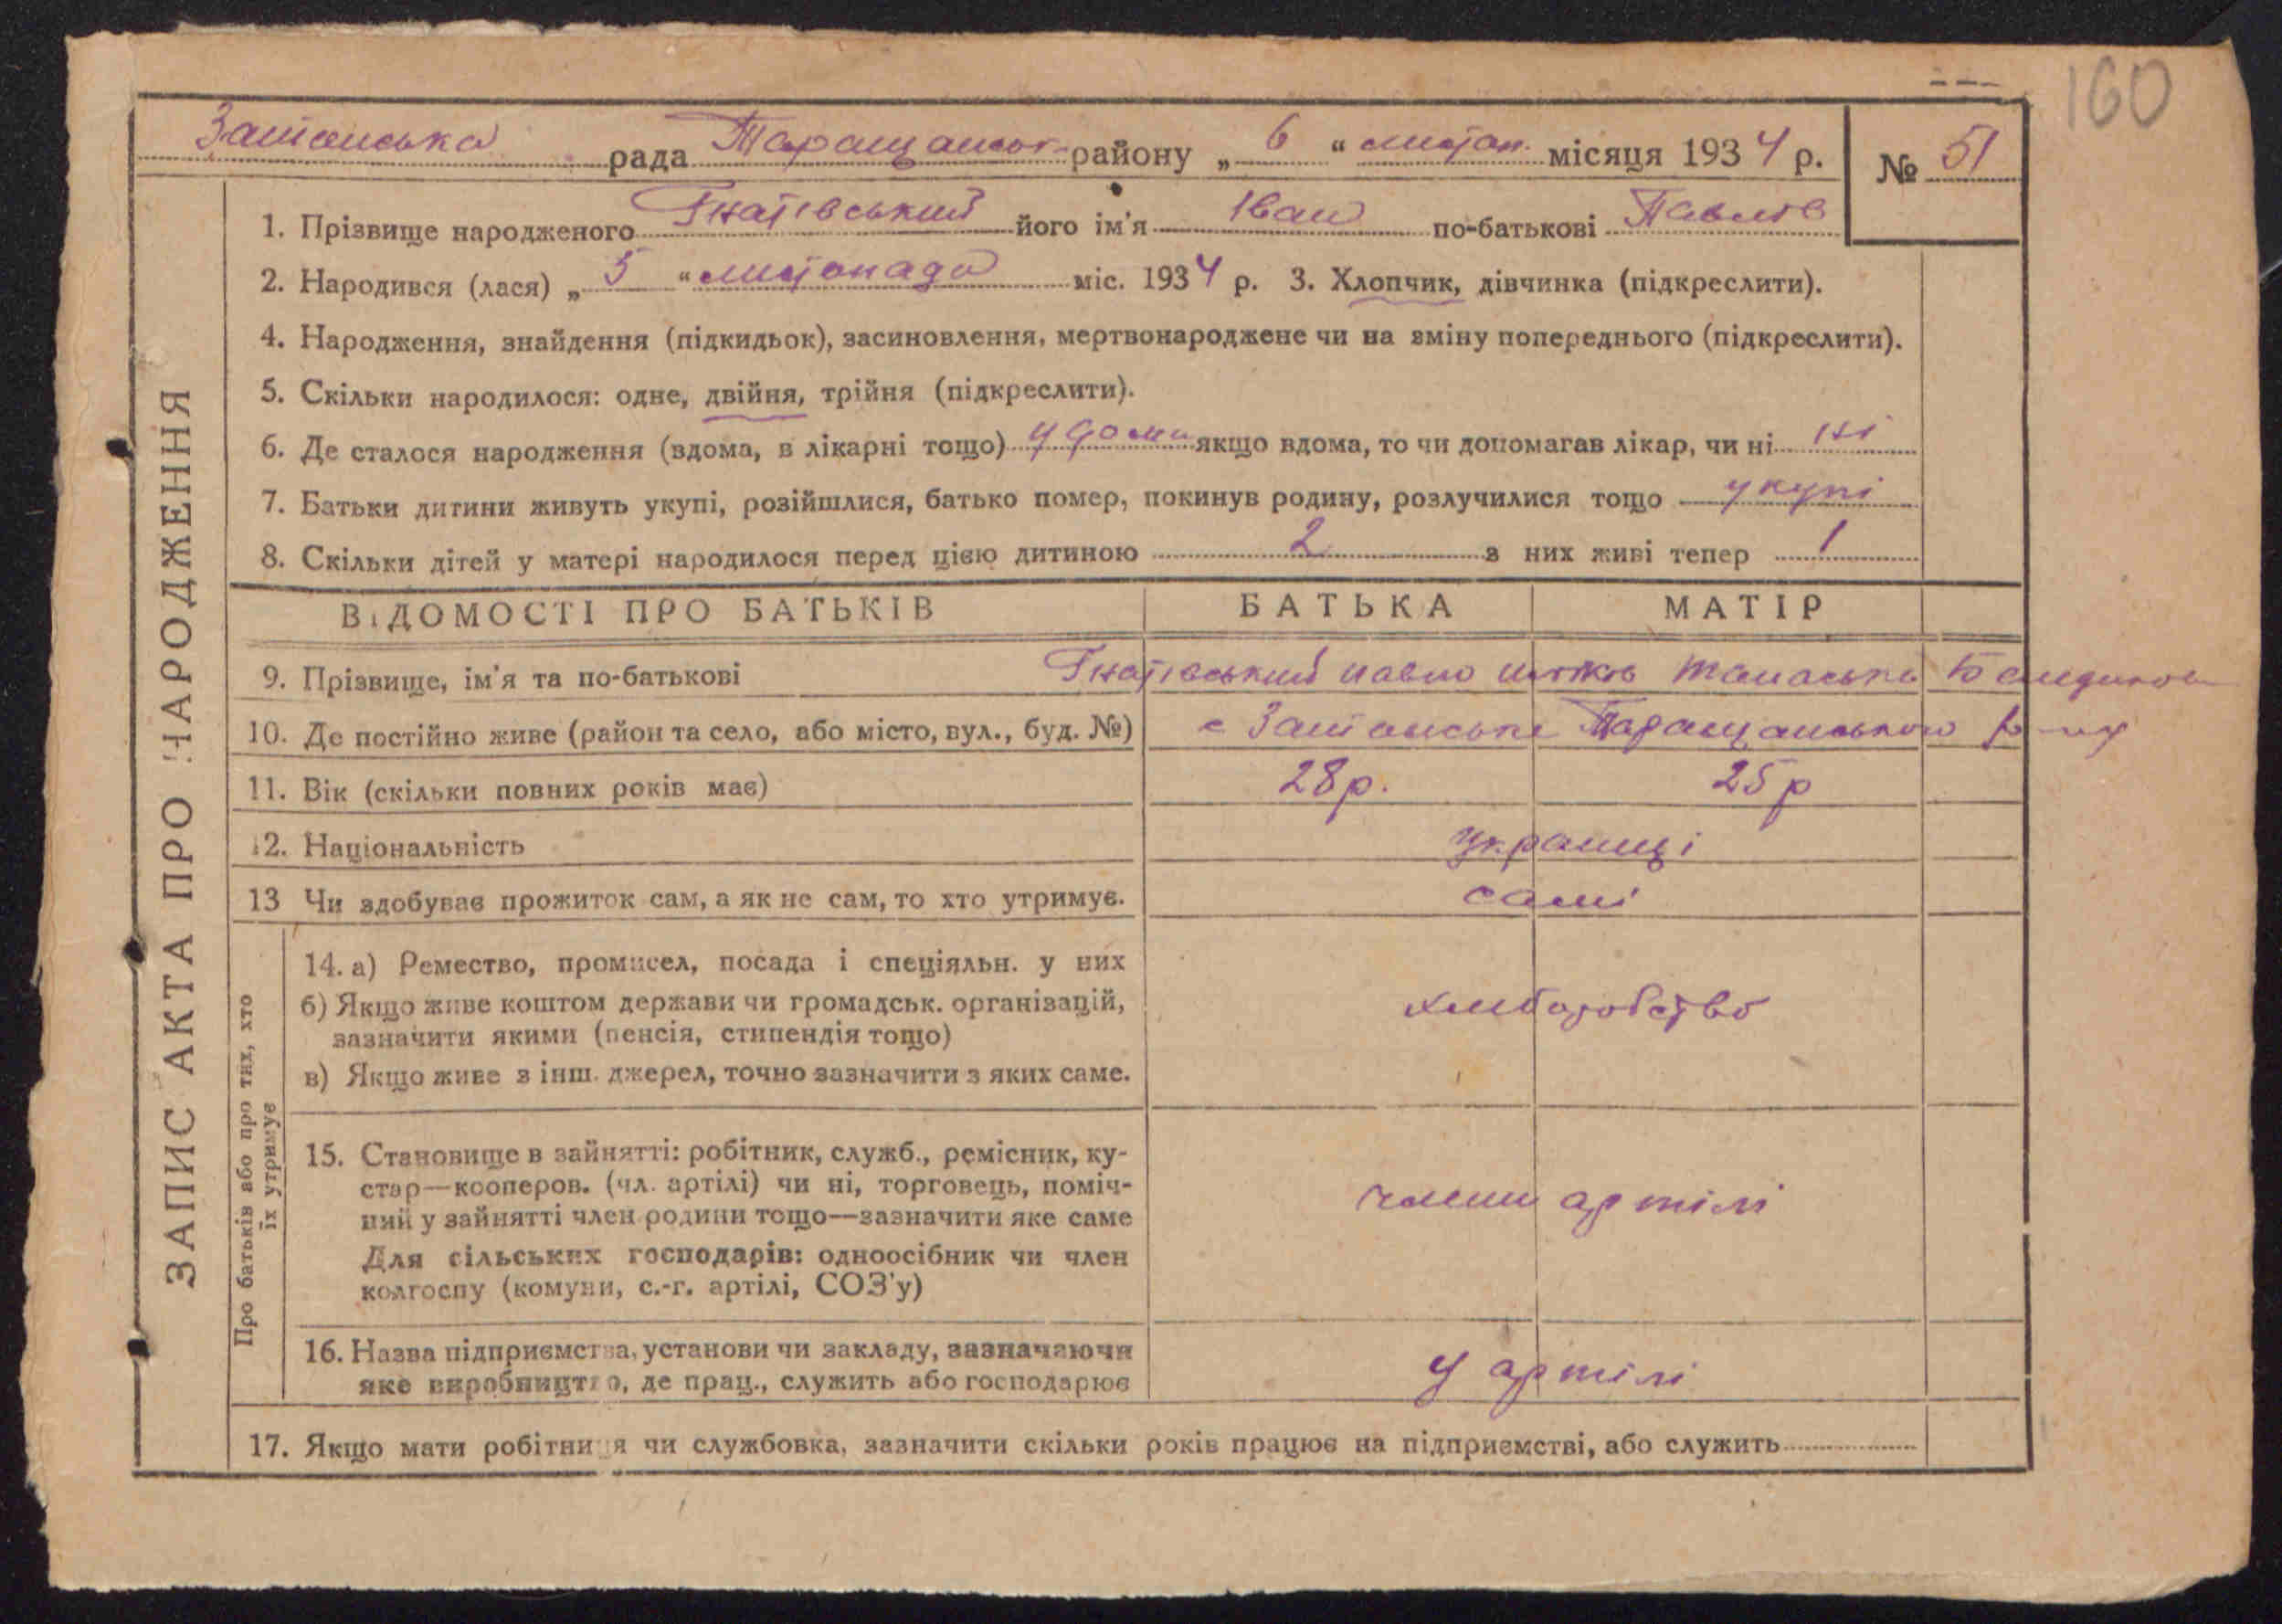 160
Зашанська рада Таращансь- району „ 6 “ листоп. місяця 1934 р. № 51
1. Прізвище народженого Гнатівський його ім'я Іван по-батькові Павлов
2. Народився (лася) „ 5 “ листопада міс. 1934 р. 3. Хлопчик, дівчинка (підкреслити).
4. Народження, знайдення (підкидьок), засиновлення, мертвонароджене чи на зміну попереднього (підкреслити).
5. Скільки народилося: одне, двійня, трійня (підкреслити).
6. Де сталося народження (вдома, в лікарні тощо) удома якщо вдома, то чи допомагав лікар, чи ні ні
7. Батьки дитини живуть укупі, розійшлися, батько помер, покинув родину, розлучилися тощо укупі
8. Скільки дітей у матері народилося перед цією дитиною 2 з них живі тепер 1
ВІДОМОСТІ ПРО БАТЬКІВ БАТЬКА МАТІР
9. Прізвище, ім'я та по-батькові Гнатівський Павло
10. Де постійно живе (район та село, або місто, вул., буд. №) с Зашанське Таращанського р-ну
11. Вік (скільки повних років має) 28р. 25р
12. Національність українці
13 Чи здобуває прожиток сам, а як не сам, то хто утримує. самі
14. а) Ремество, промисел, посада і спеціяльн. у них
б) Якщо живе коштом держави чи громадськ. організацій,
зазначити якими (пенсія, стипендія тощо)
хліборобство
в) Якщо живе з інш. джерел, точно зазначити з яких саме.
15. Становище в зайнятті: робітник, служб., ремісник, ку-
стар—кооперов. (чл. артілі) чи ні, торговець, поміч-
ний у зайнятті член родини тощо—зазначити яке саме
Для сільських господарів: одноосібник чи член
колгоспу (комуни, с.-г. артілі, СОЗ'у)
члени артілі
16. Назва підприємства, установи чи закладу, зазначаючи
яке виробництво, де прац., служить або господарює
у артілі
17. Якщо мати робітниця чи службовка, зазначити скільки років працює на підприємстві, або служить
ЗАПИС АКТА ПРО НАРОДЖЕННЯ
Про батьків або про тих, хто
їх утримує